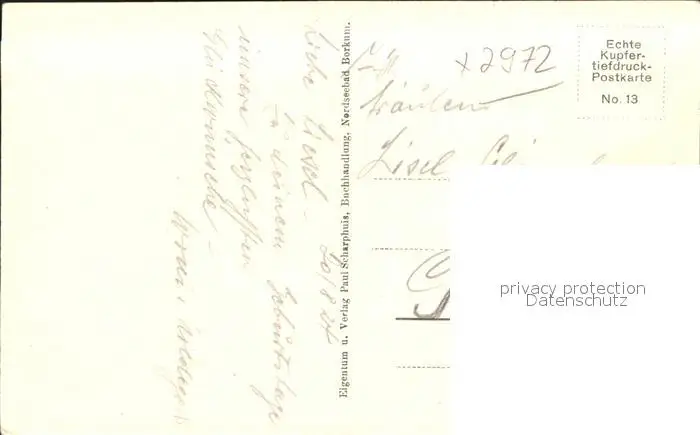 Liebe Liesel - 20/8 24
Zu deinem Geburtstage
unsere herzlichsten
Glückwünsche -
Eigentum u. Verlag Paul Scharphuis, Buchhandlung, Nordseebad Borkum.
x 2972
Echte
Kupfer-
tiefdruck-
Postkarte
No. 13
Fräulein
Lisel
privacy protection
Datenschutz